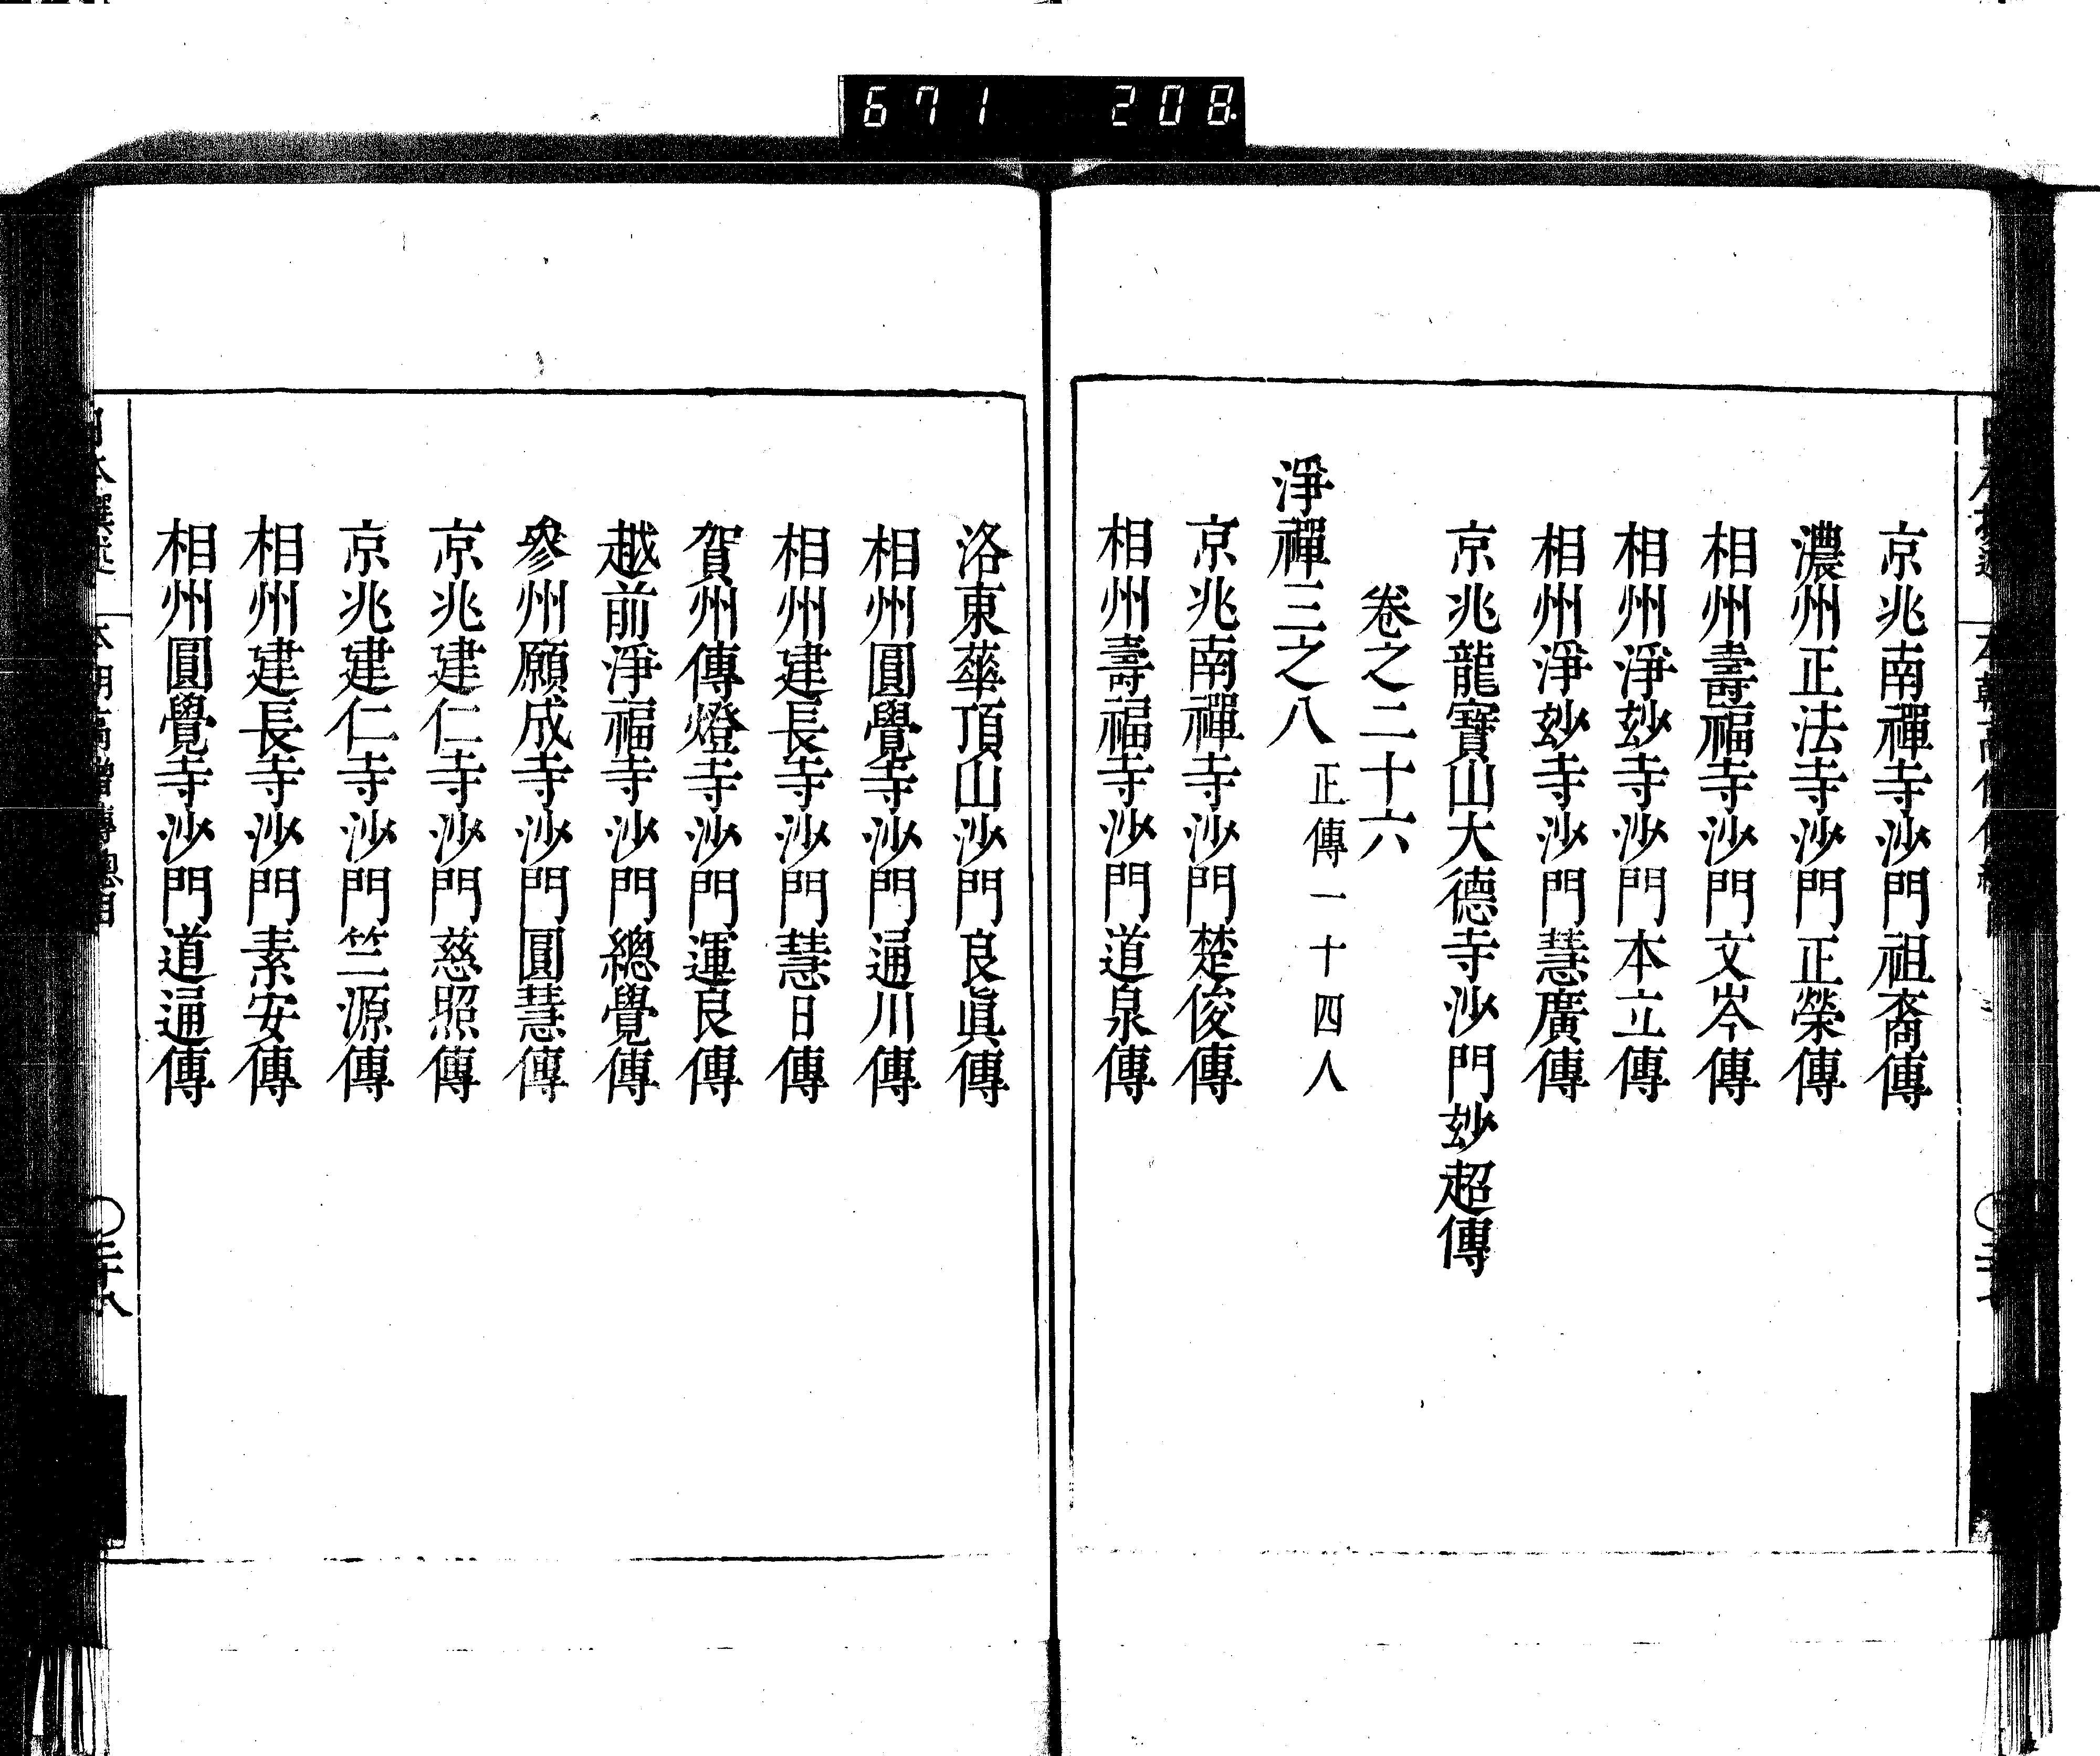 671 208
京兆南禪寺沙門祖裔傳
濃州正法寺沙門正榮傳
相州壽福寺沙門文岑傳
相州淨玅寺沙門本立傳
相州淨玅寺沙門慧廣傳
京兆龍寶山大德寺沙門玅超傳
卷之二十六
淨禪三之八 正傳一十四人
京兆南禪寺沙門楚俊傳
相州壽福寺沙門道泉傳
洛東華頂山沙門良眞傳
相州圓覺寺沙門通川傳
相州建長寺沙門慧日傳
賀州傳燈寺沙門運良傳
越前淨福寺沙門總覺傳
參州願成寺沙門圓慧傳
京兆建仁寺沙門慈照傳
京兆建仁寺沙門竺源傳
相州建長寺沙門素安傳
相州圓覺寺沙門道通傳